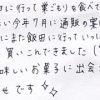 さに行って栗どらりを食べて
い今年7月に通販の案
にまた飯田に行っていっし
買いこんできました(^
味しいお菓子に出会え
せです☆☆